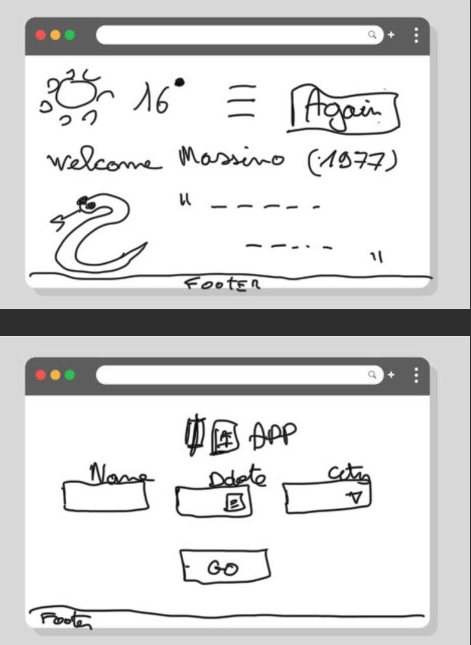 16° Again
Welcome Massimo (1977)
" _ _ _ _ _
_ _ _ _ "
FOOTER
APP
Name Ddate City
GO
Footer